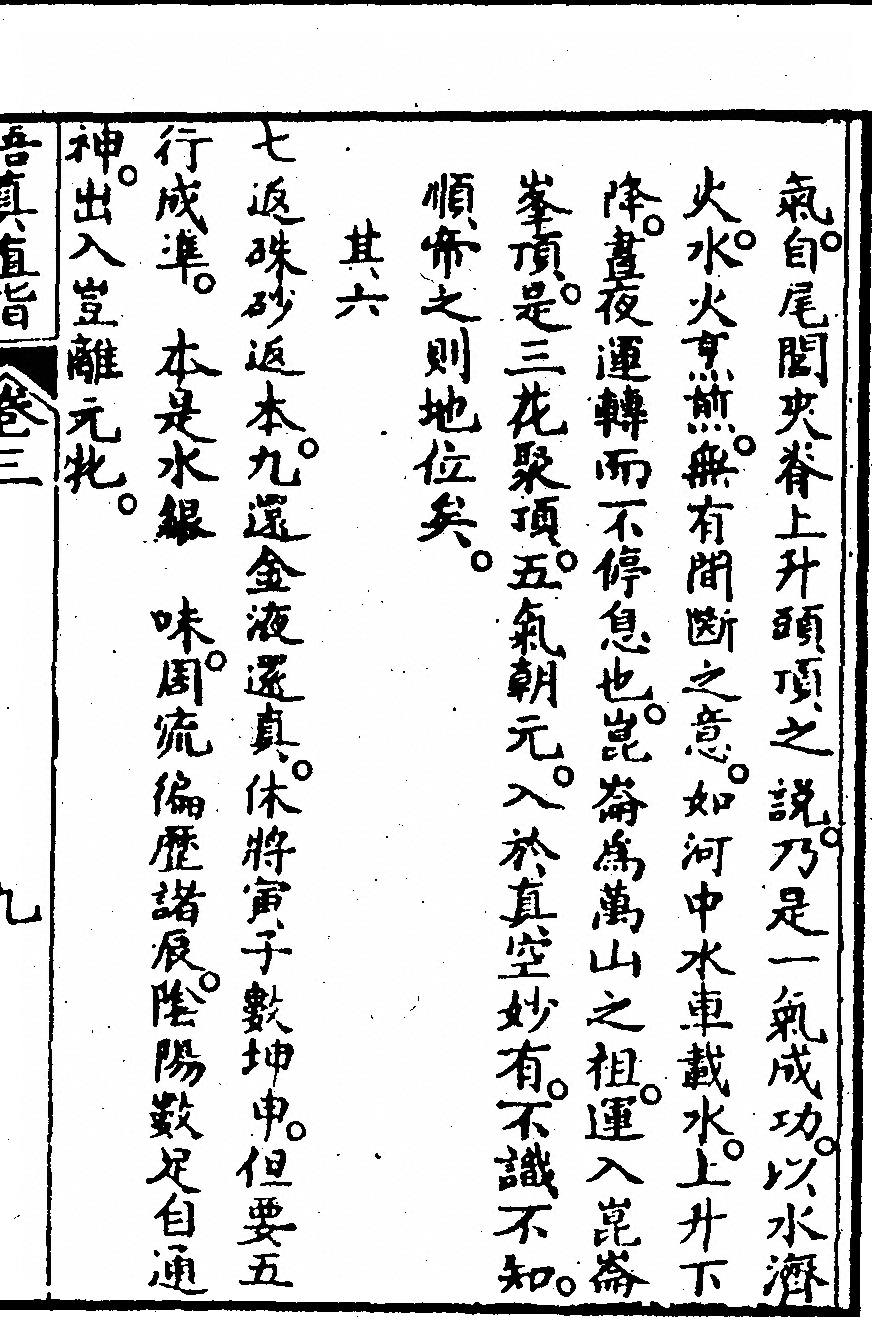 氣。自尾閭夾脊上升頭頂之說。乃是一氣成功。以水濟
火。水火烹煎。無有間斷之意。如河中水車載水。上升下
降。晝夜運轉而不停息也。崑崙為萬山之祖。運入崑崙
峯頂。是三花聚頂。五氣朝元。入於真空妙有。不識不知。
順帝之則地位矣。
其六
七返硃砂返本。九還金液還真。休將寅子數坤申。但要五
行成準。 本是水銀 味。周流徧歷諸辰。陰陽數足自通
神。出入豈離元牝。
悟真直指 卷三 九